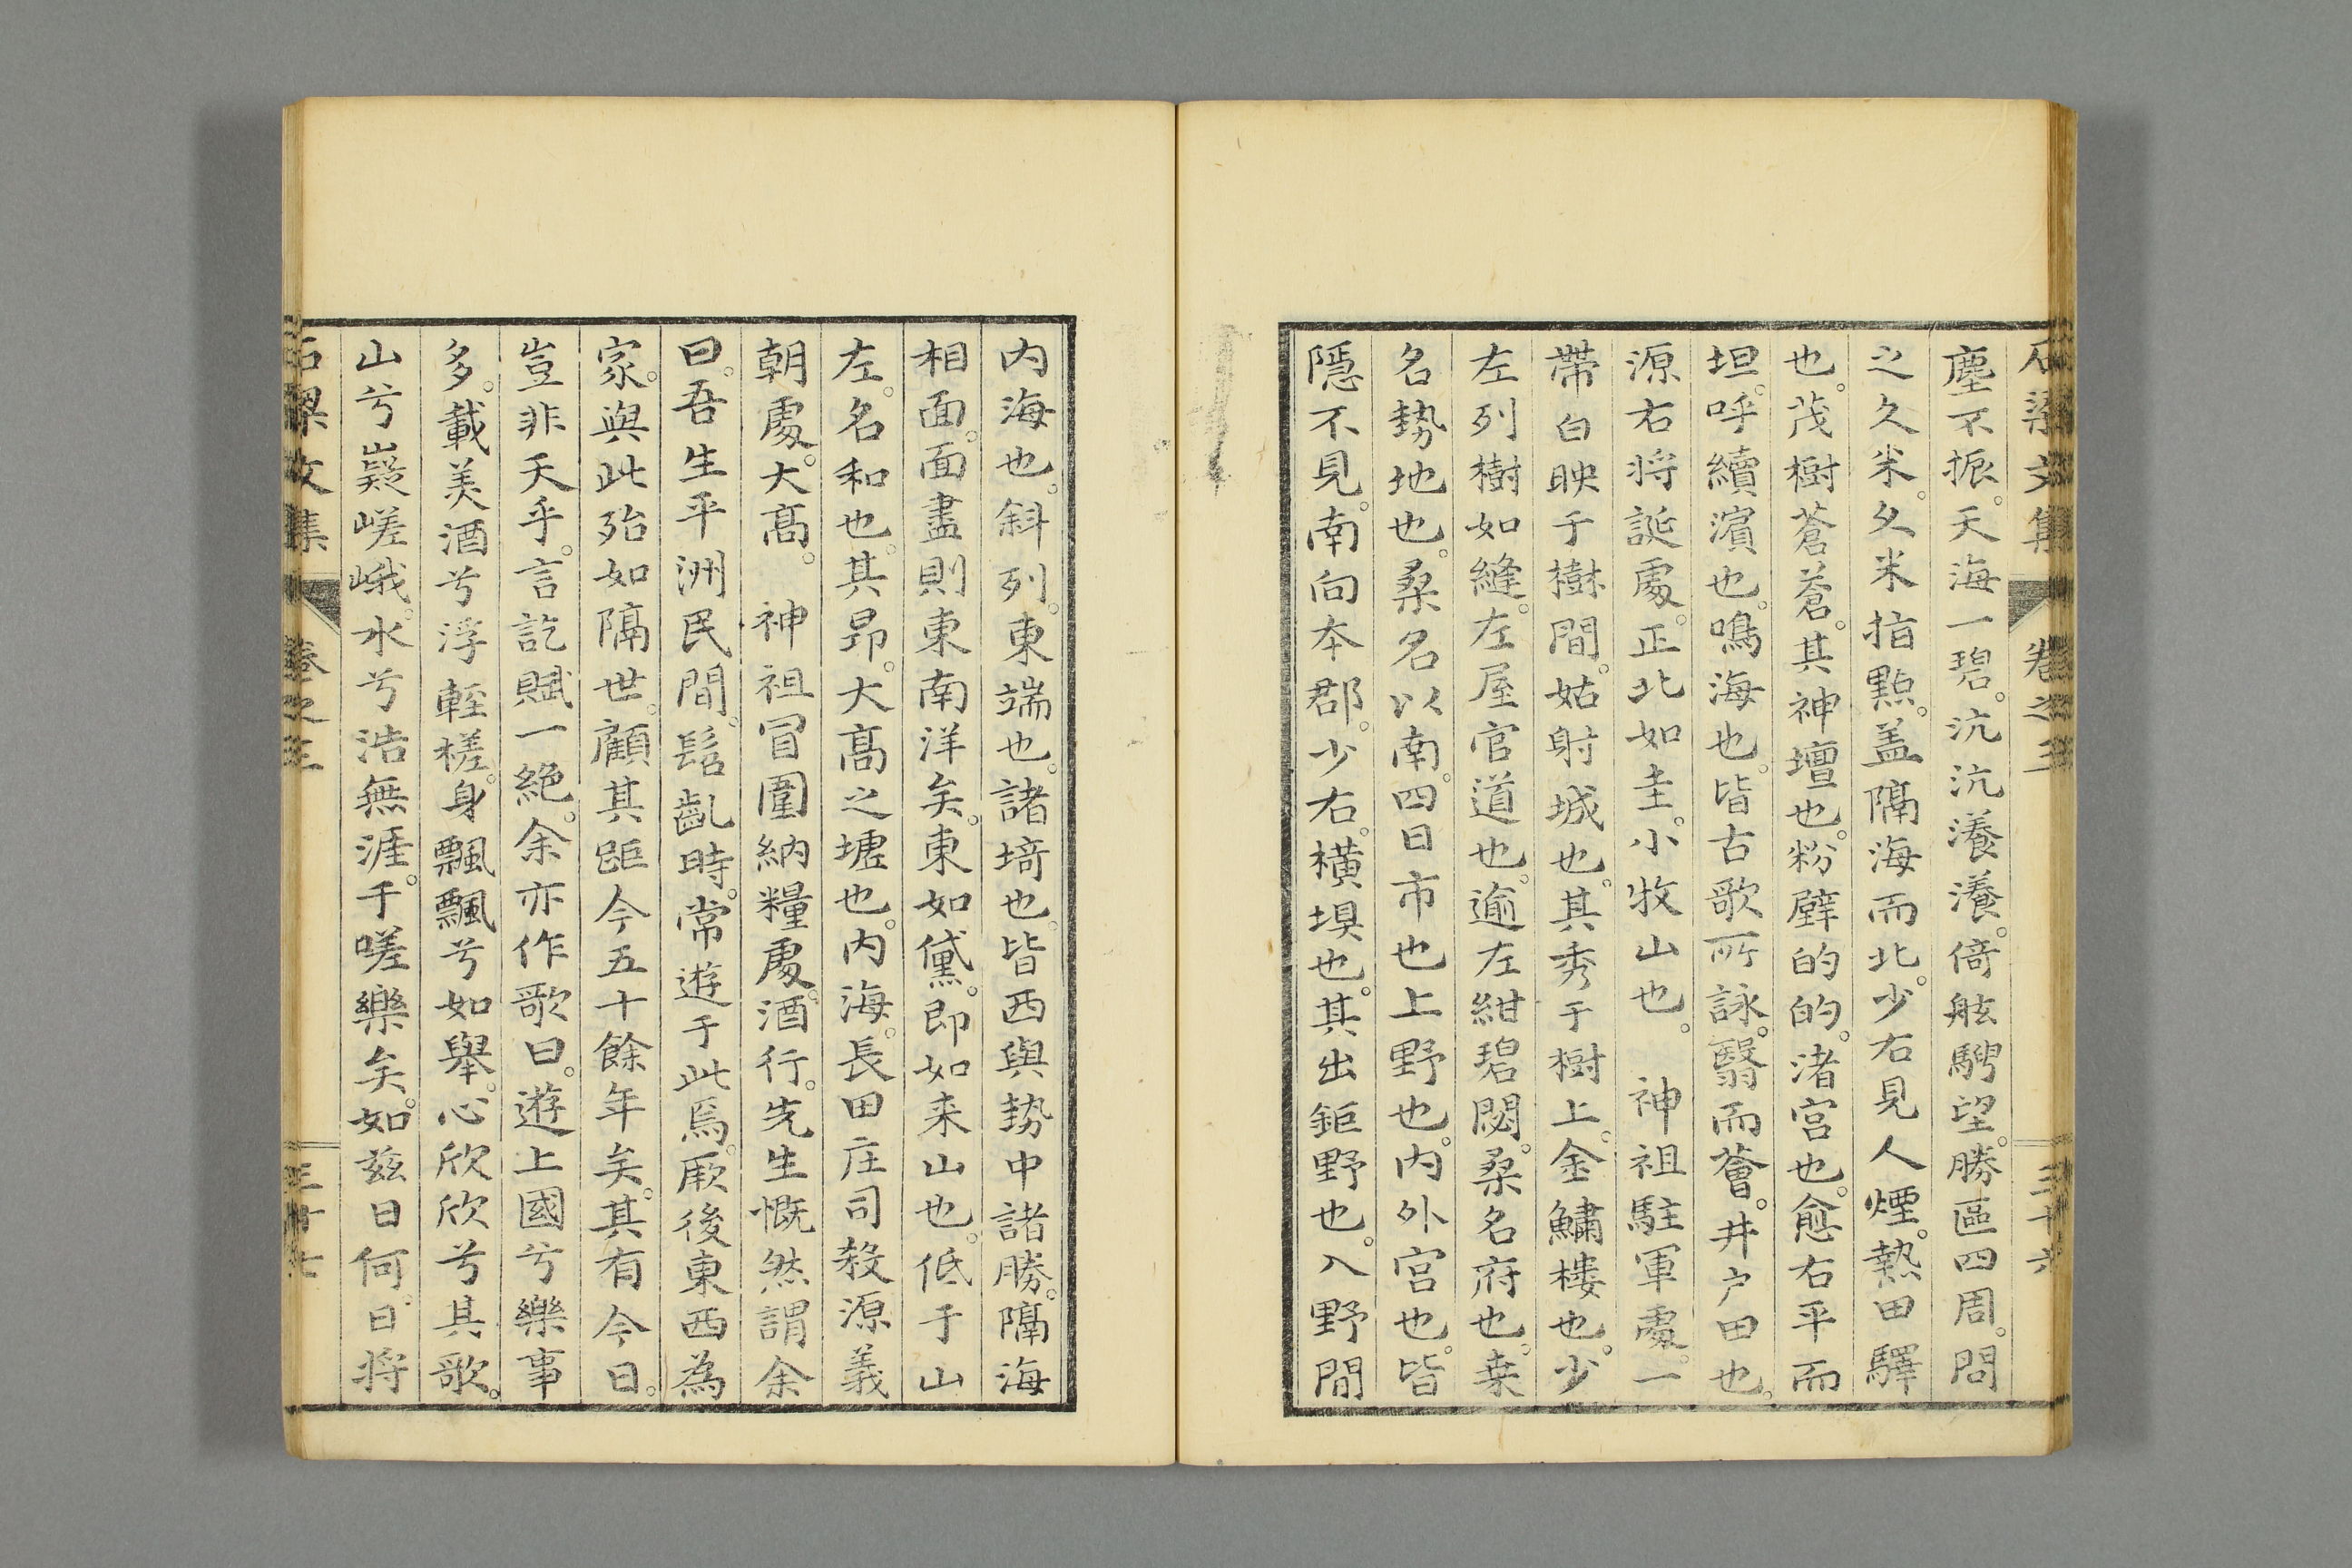 石梁文集 卷之三 三十六
塵不振。天海一碧。沆沆瀁瀁。倚舷騁望。勝區四周。問
之久米。久米指點。盖隔海而北。少右見人煙。熱田驛
也。茂樹蒼蒼。其神壇也。粉壁的的。渚宮也。愈右平而
坦。呼續濱也。鳴海也。皆古歌所詠。翳而薈。井戸田也。
源右将誕處。正北如圭。小牧山也。 神祖駐軍處。一
帶白映于樹間。姑射城也。其秀于樹上。金鱐樓也。少
左列樹如縫。左屋官道也。逾左紺碧閟。桑名府也。桒
名勢地也。桑名以南。四日市也上野也。内外宮也。皆
隱不見。南向本郡。少右。横埧也。其出鉅野也。入野間
内海也。斜列。東端也。諸埼也。皆西與勢中諸勝。隔海
相面。面盡則東南洋矣。東如黛。即如来山也。低于山
左。名和也。其昴。大髙之墟也。内海。長田庄司殺源義
朝處。大髙。 神祖冒圍納糧處。酒行。先生慨然謂余
曰。吾生平洲民間。髫齔時。常遊于此焉。厥後東西為
家。與此殆如隔世。顧其距今五十餘年矣。其有今日。
豈非天乎。言訖賦一絶。余亦作歌曰。遊上國兮樂事
多。載美酒兮浮輕槎。身飄飄兮如舉。心欣欣兮其歌。
山兮嶷嵯峨。水兮浩無涯。于嗟樂矣。如兹日何。日将
石梁文集 卷之三 三十七